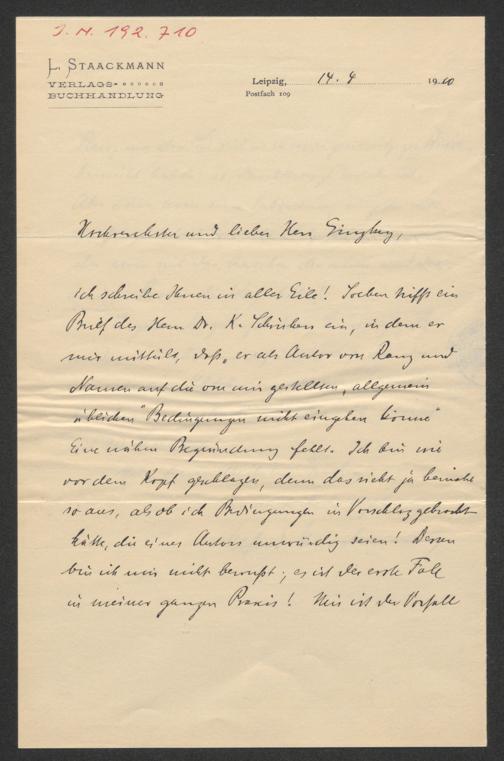 J. N. 192.710
L. STAACKMANN
VERLAGS-
BUCHHANDLUNG
Leipzig, 14. 4 1910
Postfach 109
Hochverehrter und lieber Herr Ginzkey,
ich schreibe Ihnen in aller Eile! Soeben trifft ein
Brief des Herrn Dr. K. Schönherr ein, in dem er
mir mitteilt, daß „er als Autor von Rang und
Namen auf die von mir gestellten „allgemein
üblichen" Bedingungen nicht eingehen könne"
Eine nähere Begründung fehlt. Ich bin wie
vor den Kopf geschlagen, denn das sieht ja beinahe
so aus, als ob ich Bedingungen in Vorschlag gebracht
hätte, die eines Autors unwürdig seien! Dessen
bin ich mir nicht bewußt; es ist der erste Fall
in meiner ganzen Praxis! Mir ist der Vorfall